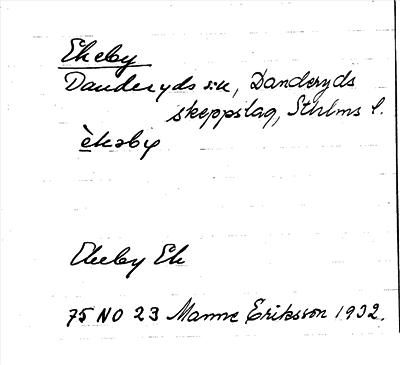 Ekeby
Danderyds sn, Danderyds
skeppslag, Sthlms l.
èkəby
Ekeby Ek
75 NO 23 Manne Eriksson 1932.